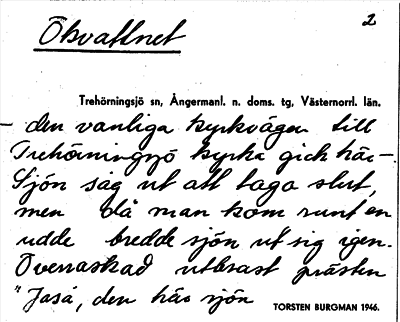 2
Ökvattnet
Trehörningsjö sn, Ångermanl. n. doms. tg, Västernorrl. län.
– den vanliga kyrkvägen till
Trehörningsjö kyrka gick här –
Sjön såg ut att taga slut,
men då man kom runt en
udde bredde sjön ut sig igen.
Överraskad utbrast prästen
"Jaså, den här sjön
TORSTEN BURGMAN 1946.